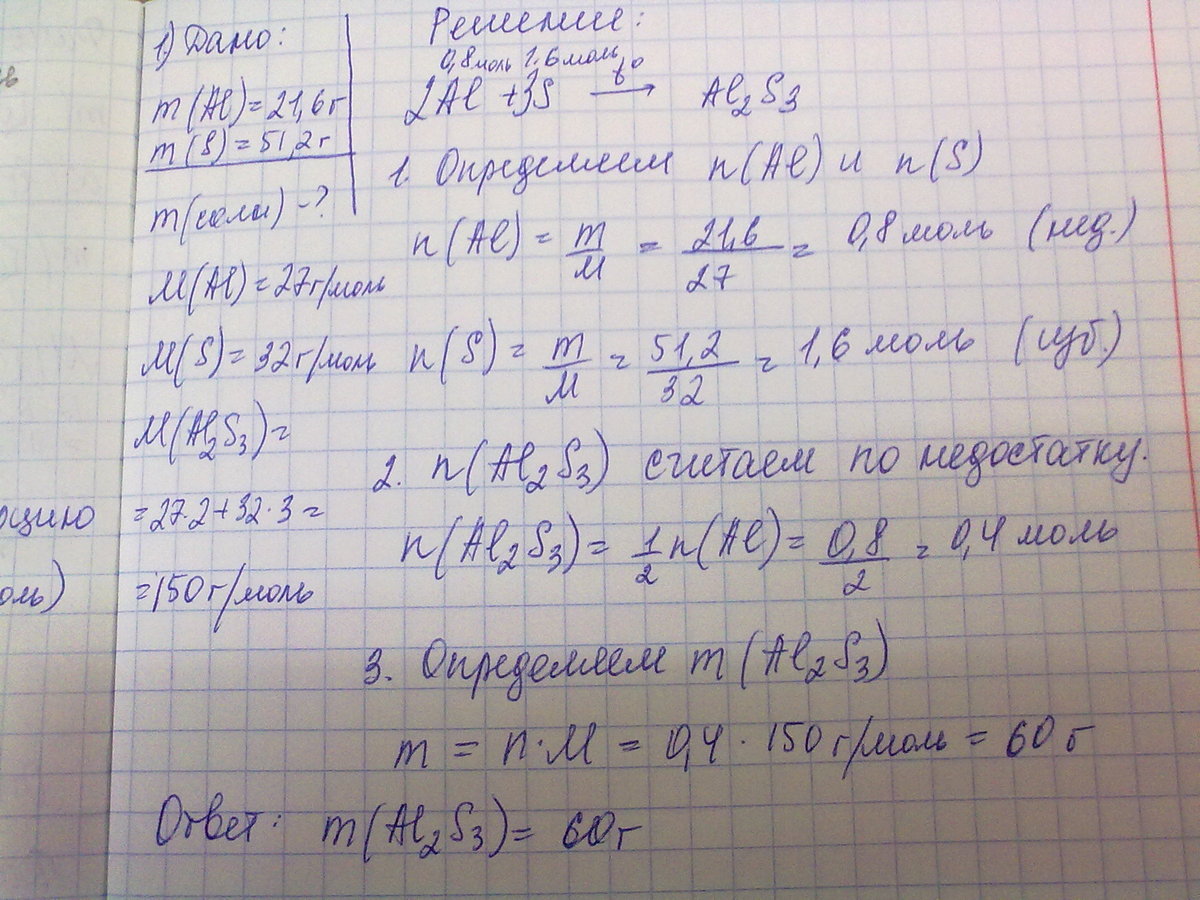 1) Дано:
m(Al)=21,6г
m(S)=51,2г
m(соли)-?
M(Al)=27г/моль
M(S)=32г/моль
M(Al₂S₃)=
=27·2+32·3=
=150г/моль
Решение:
0,8моль 1,6моль
2Al +3S t° → Al₂S₃
1. Определяем n(Al) и n(S)
n(Al) = m/M = 21,6/27 = 0,8 моль (нед.)
n(S) = m/M = 51,2/32 = 1,6 моль (изб.)
2. n(Al₂S₃) считаем по недостатку.
n(Al₂S₃)= 1/2 n(Al)= 0,8/2 = 0,4 моль
3. Определяем m(Al₂S₃)
m = n·M = 0,4 · 150 г/моль = 60 г
Ответ: m(Al₂S₃)= 60г
оль)